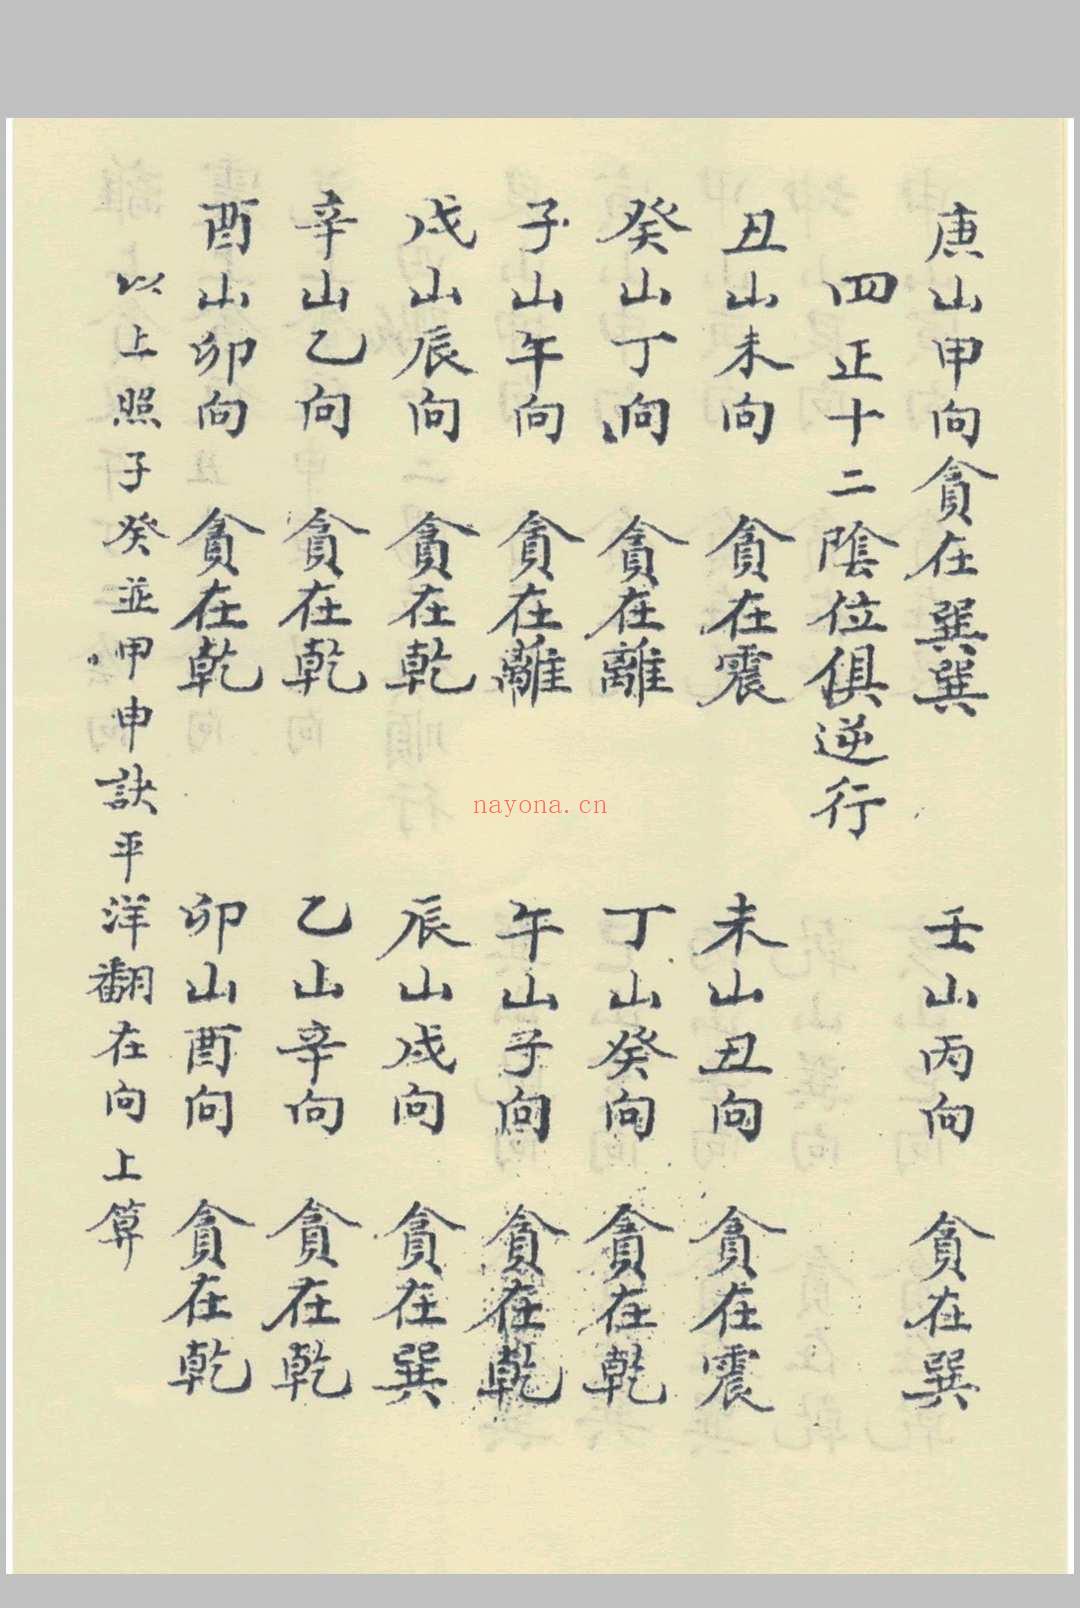 庚山甲向貪在巽巽　壬山丙向　貪在巽
四正十二陰位俱逆行
丑山未向　貪在震　未山丑向　貪在震
癸山丁向　貪在離　丁山癸向　貪在乾
子山午向　貪在離　午山子向　貪在乾
戌山辰向　貪在乾　辰山戌向　貪在巽
辛山乙向　貪在乾　乙山辛向　貪在乾
酉山卯向　貪在乾　卯山酉向　貪在乾
以上照子癸並甲申訣平洋翻在向上算
nayona.cn